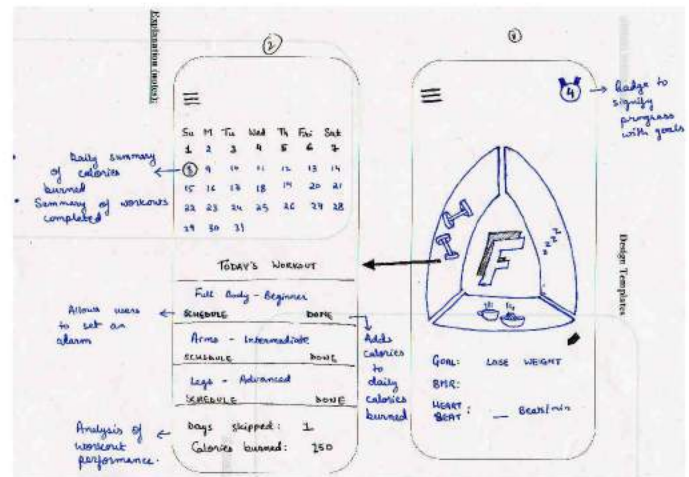 Explanation (notes):
2
Su M Tu Wed Th Fri Sat
1 2 3 4 5 6 7
8 9 10 11 12 13 14
15 16 17 18 19 20 21
22 23 24 25 26 27 28
29 30 31
Daily summary
of calories
burned
Summary of workouts
completed
TODAY'S WORKOUT
Full Body - Beginner
SCHEDULE DONE
Arms - Intermediate
SCHEDULE DONE
Legs - Advanced
SCHEDULE DONE
Days skipped: 1
Calories burned: 250
Allows users
to set an
alarm
Analysis of
workout
performance.
Adds
calories
to
daily
calories
burned
4
Badge to
signify
progress
with goals
F
zzzz
GOAL: LOSE WEIGHT
BMR:
HEART
BEAT : __ Beats/min
Design Templates